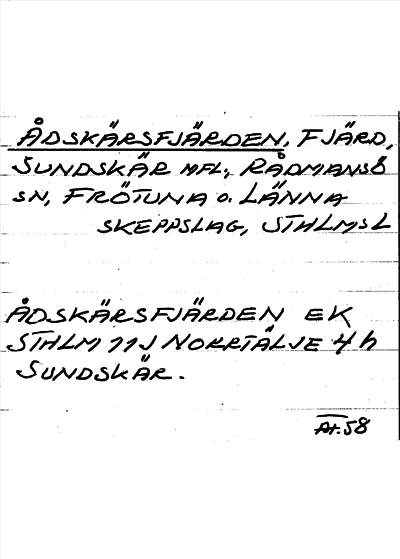 ÅDSKÄRSFJÄRDEN, FJÄRD,
SUNDSKÄR MFL., RÅDMANSÖ
SN, FRÖTUNA O. LÄNNA
SKEPPSLAG, STHLMSL
ÅDSKÄRSFJÄRDEN EK
STHLM 11J NORRTÄLJE 4h
SUNDSKÄR.
At.58